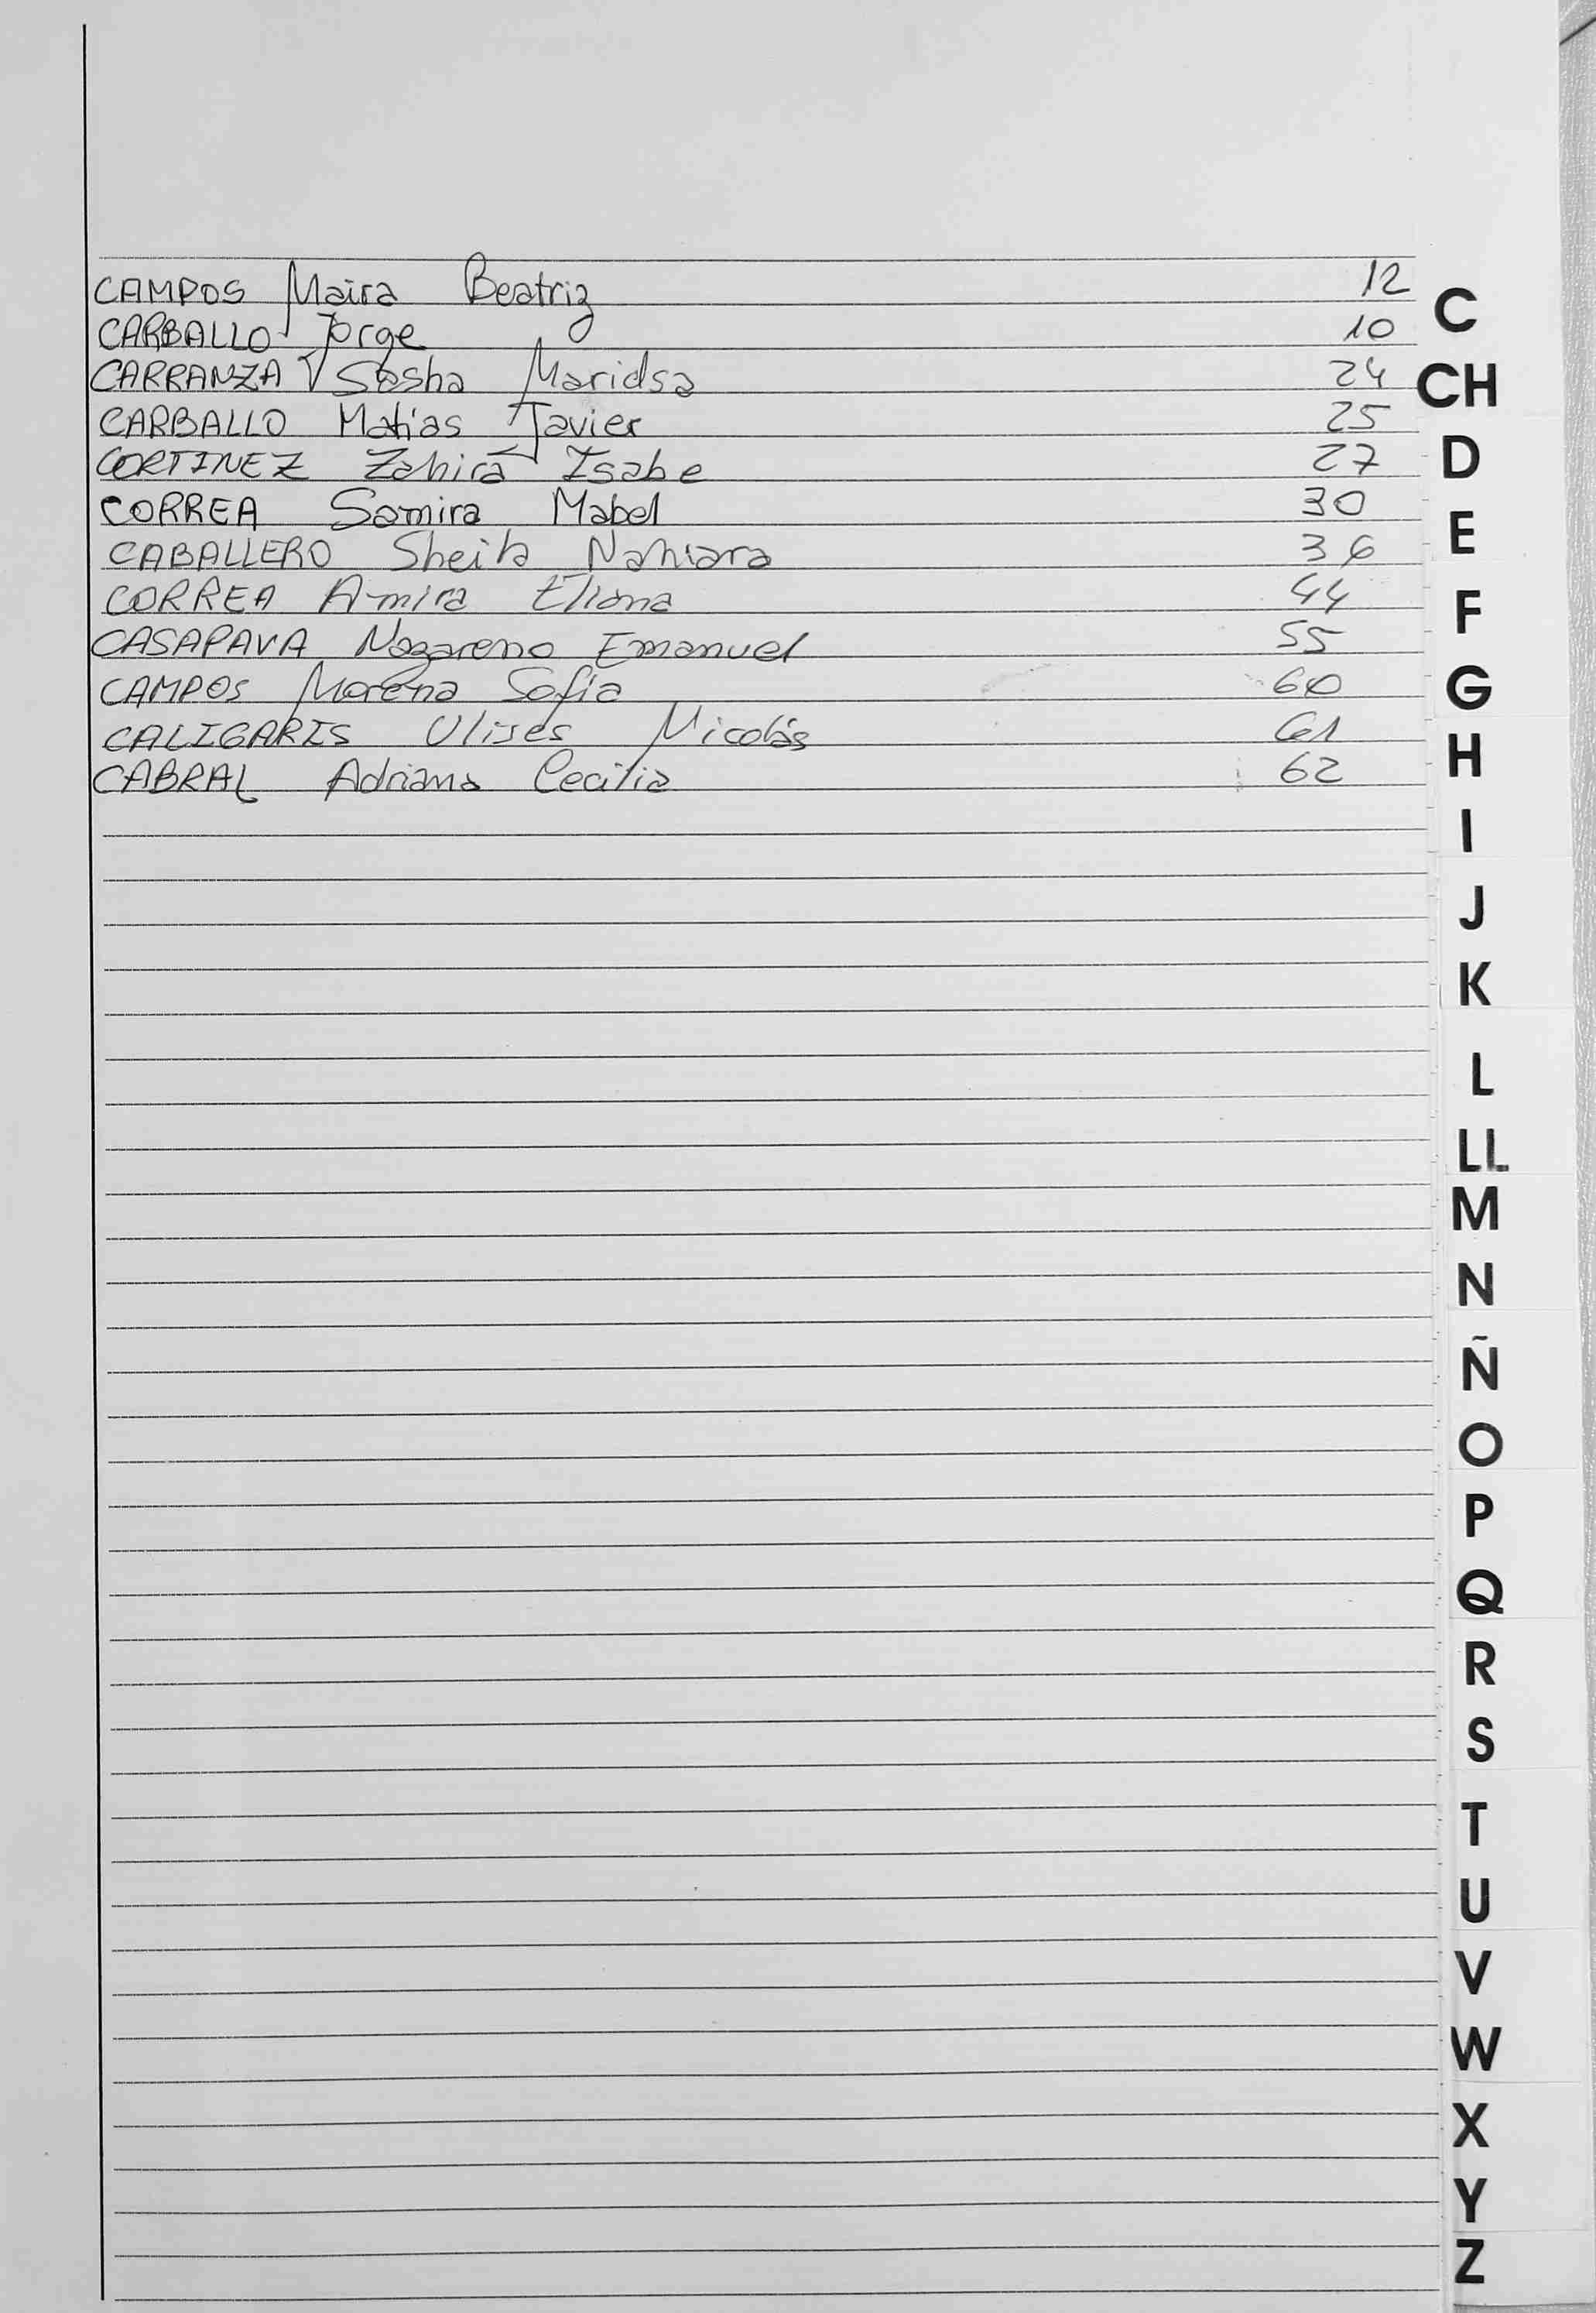 CAMPOS Maira Beatriz 12
CARBALLO Jorge 10
CARRANZA Sasha 24
CARBALLO Matias Javier 25
CORTINEZ Zahira Isabe 27
CORREA Samira Mabel 30
CABALLERO Sheila Nahiara 36
CORREA Amira Eliana 44
CASAPAVA Nazareno Emanuel 55
CAMPOS Morena Sofia 60
CALIGARIS Ulises Nicolás 61
CABRAL Adriana Cecilia 62
C
CH
D
E
F
G
H
I
J
K
L
LL
M
N
Ñ
O
P
Q
R
S
T
U
V
W
X
Y
Z